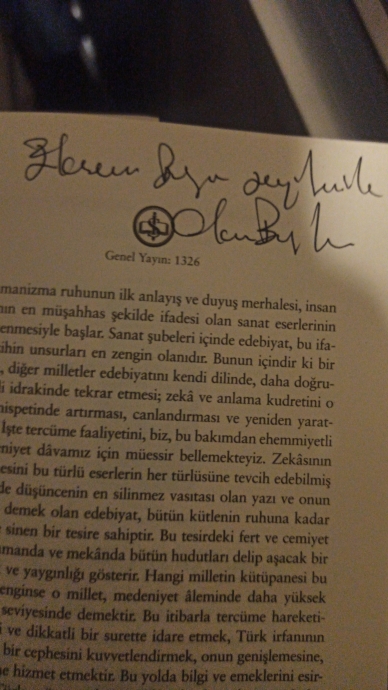 Genel Yayın: 1326
manizma ruhunun ilk anlayış ve duyuş merhalesi, insan
nın en müşahhas şekilde ifadesi olan sanat eserlerinin
enmesiyle başlar. Sanat şubeleri içinde edebiyat, bu ifa-
ihin unsurları en zengin olanıdır. Bunun içindir ki bir
, diğer milletler edebiyatını kendi dilinde, daha doğru-
i idrakinde tekrar etmesi; zekâ ve anlama kudretini o
nispetinde artırması, canlandırması ve yeniden yarat-
İşte tercüme faaliyetini, biz, bu bakımdan ehemmiyetli
niyet dâvamız için müessir bellemekteyiz. Zekâsının
esini bu türlü eserlerin her türlüsüne tevcih edebilmiş
de düşüncenin en silinmez vasıtası olan yazı ve onun
demek olan edebiyat, bütün kütlenin ruhuna kadar
sinen bir tesire sahiptir. Bu tesirdeki fert ve cemiyet
amanda ve mekânda bütün hudutları delip aşacak bir
ve yaygınlığı gösterir. Hangi milletin kütüpanesi bu
enginse o millet, medeniyet âleminde daha yüksek
seviyesinde demektir. Bu itibarla tercüme hareketi-
i ve dikkatli bir surette idare etmek, Türk irfanının
bir cephesini kuvvetlendirmek, onun genişlemesine,
e hizmet etmektir. Bu yolda bilgi ve emeklerini esir-